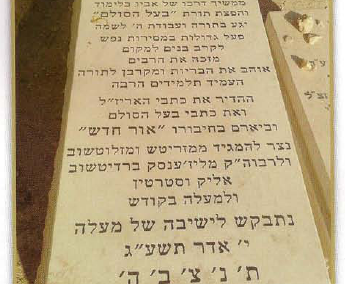 ממשיך דרכו של אביו בלימוד
והפצת תורת "בעל הסולם"
יגע בתורה ועבודת ה' לשמה
פעל גדולות במסירות נפש
לקרב בנים למקום
מזכה את הרבים
אוהב את הבריות ומקרבן לתורה
העמיד תלמידים הרבה
ההדיר את כתבי האריז"ל
ואת כתבי בעל הסולם
וביארם בחיבורו "אור חדש"
נצר להמגיד ממזריטש ומזלוטשוב
ולרבוה"ק מליז'ענסק ברדיטשוב
אליק וסטרטין
ולמעלה בקודש
נתבקש לישיבה של מעלה
י' אדר תשע"ג
ת' נ' צ' ב' ה'